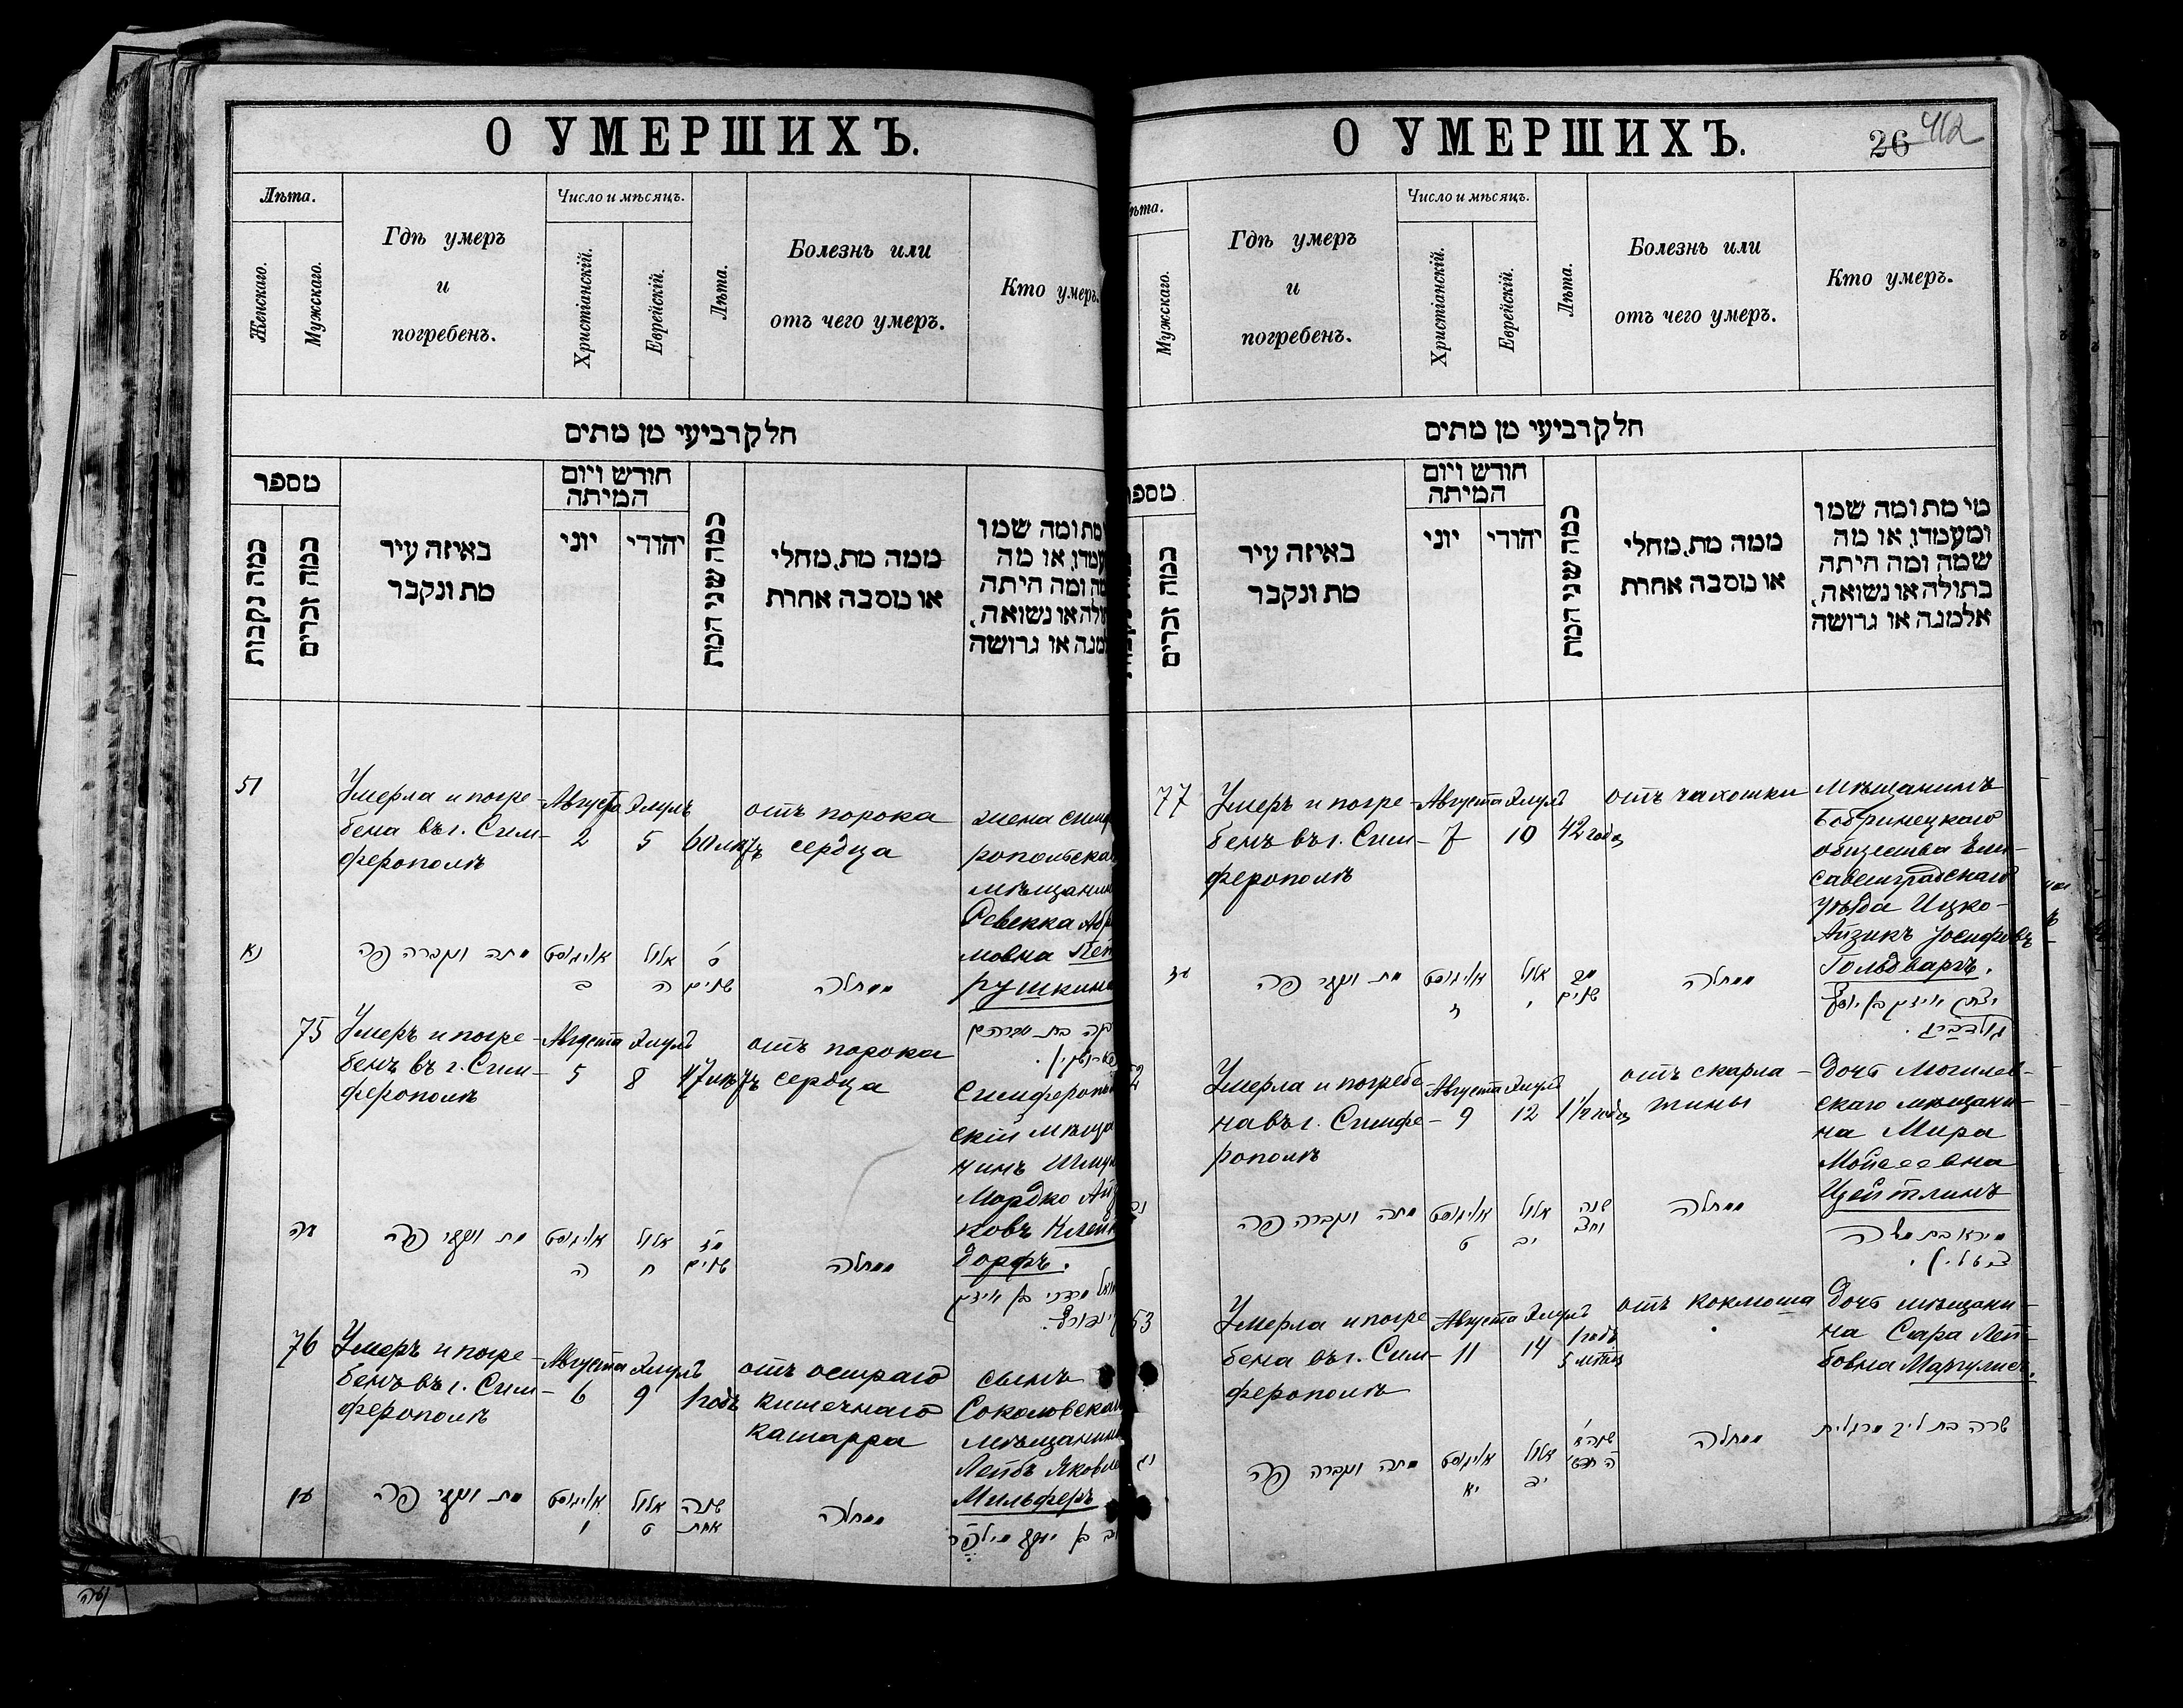 О УМЕРШИХЪ.
Лѣта.
Женскаго.
Мужскаго.
Гдѣ умеръ
и
погребенъ.
Число и мѣсяцъ.
Христіанскій.
Еврейскій.
Лѣта.
Болезнь или
отъ чего умеръ.
Кто умеръ.
חלק רביעי מן מתים
מספר
כמה נקבות
כמה זכרים
באיזה עיר
מת ונקבר
חודש ויום
המיתה
יוני
יהודי
כמה שני המת
ממה מת, מחלי
או מסבה אחרת
מת ומה שמו
או מה
ומה היתה
או נשואה,
או גרושה
51
Умерла и погре-
бена въ г. Сим-
ферополѣ
Августа
2
Элулъ
5
60 лѣтъ
отъ порока
сердца
жена симф
ропольска
мѣщанин
Ревекка Абр
мовна Пет
рушкина
נא
מתה ונקברה פה
אויגוסט
ב
אלול
ה
ס
שנים
ממחלה
בת אברהם
75
Умеръ и погре-
бенъ въ г. Сим-
ферополѣ
Августа
5
Элулъ
8
47 лѣтъ
отъ порока
сердца
Симферополь
скій мѣща
нинъ Шмул
Мордко Айз
ковъ Клейн
дорфъ.
עה
מת ונקבר פה
אויגוסט
ה
אלול
ח
מז
שנים
ממחלה
מרדכי בן אייזיק
76
Умеръ и погре-
бенъ въ г. Сим-
ферополѣ
Августа
6
Элулъ
9
1 годъ
отъ остраго
кишечнаго
катарра
сынъ
Соколовскаг
мѣщанина
Лейбъ Яковле
Мильферъ
עו
מת ונקבר פה
אויגוסט
ו
אלול
ט
שנה
אחת
ממחלה
בן יעקב מילפר
О УМЕРШИХЪ.
26
412
Мужскаго.
Гдѣ умеръ
и
погребенъ.
Число и мѣсяцъ.
Христіанскій.
Еврейскій.
Лѣта.
Болезнь или
отъ чего умеръ.
Кто умеръ.
חלק רביעי מן מתים
כמה זכרים
באיזה עיר
מת ונקבר
חודש ויום
המיתה
יוני
יהודי
כמה שני המת
ממה מת, מחלי
או מסבה אחרת
מי מת ומה שמו
ומעמדו, או מה
שמה ומה היתה
בתולה או נשואה,
אלמנה או גרושה
77
Умеръ и погре-
бенъ въ г. Сим-
ферополѣ
Августа
7
Элулъ
10
42 года
отъ чахотки
мѣщанинъ
Бобринецкаго
общества Ели-
саветградскаго
уѣзда Ицко-
Айзикъ Іосифовъ
Гольдваргъ.
עז
מת ונקבר פה
אויגוסט
ז
אלול
י
מב
שנים
ממחלה
יצחק אייזיק בן יוסף
52
Умерла и погребе-
на въ г. Симфе-
рополѣ
Августа
9
Элулъ
12
1½ года
отъ скарла-
тины
дочь Могилев-
скаго мѣщани-
на Мира
Мойсеевна
Цейтлинъ
נב
מתה ונקברה פה
אויגוסט
ט
אלול
יב
שנה
וחצי
ממחלה
מירא בת משה
צייטלין.
53
Умерла и погре-
бена въ г. Сим-
ферополѣ
Августа
11
Элулъ
14
1 годъ
5 мѣсяц
отъ коклюша
дочь мѣщани-
на Сара Лей-
бовна Маргулисъ.
נג
מתה ונקברה פה
אויגוסט
יא
אלול
ממחלה
שרה בת ליב מרגלית